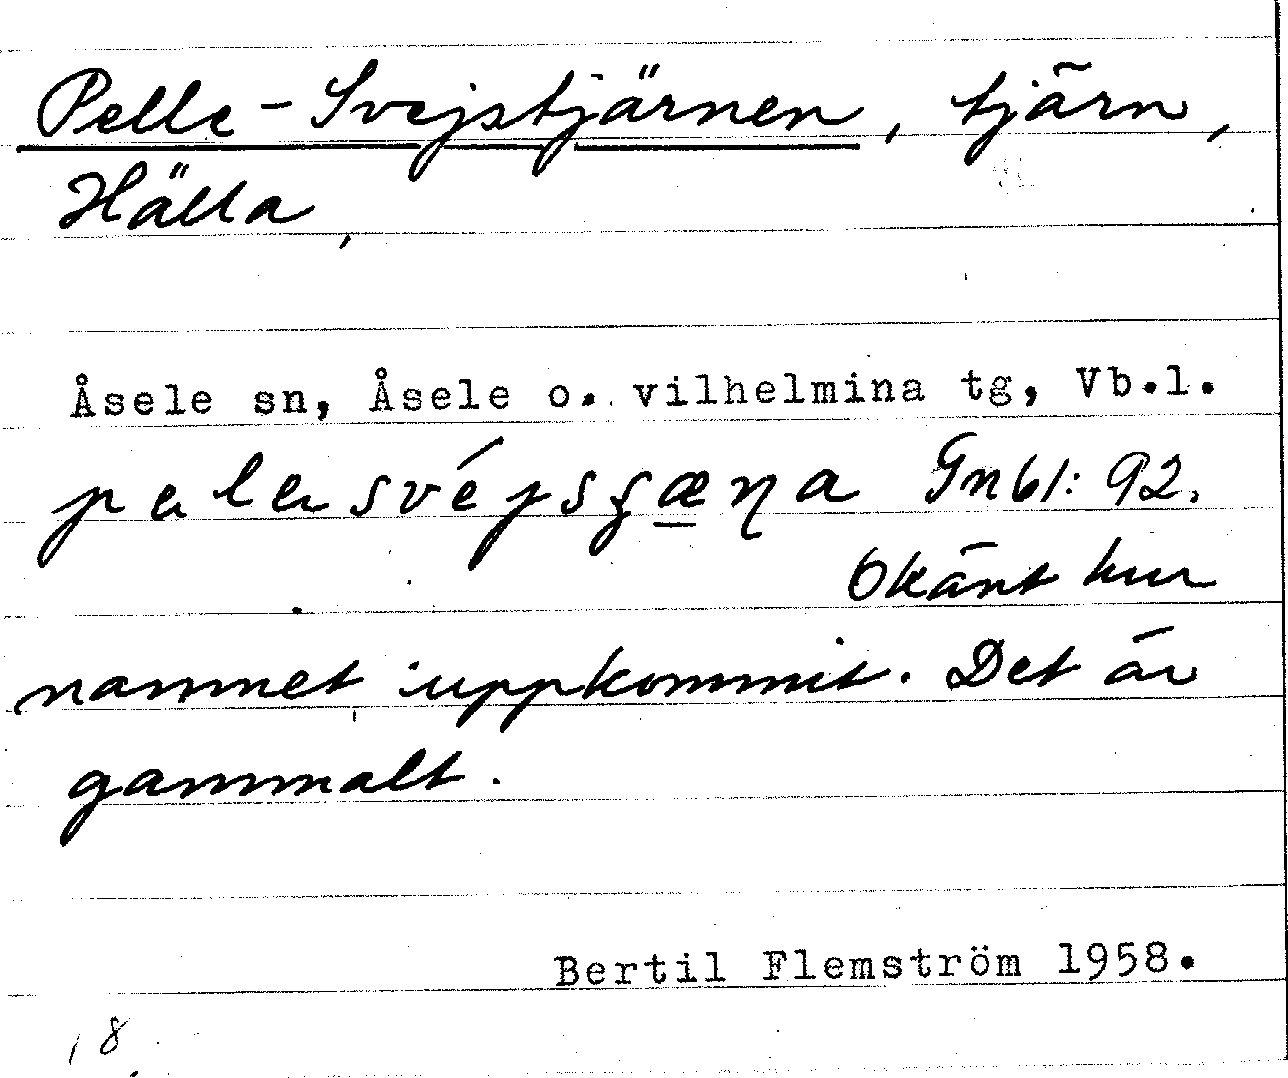 Pelle-Svejstjärnen, tjärn,
Hälla,
Åsele sn, Åsele o. vilhelmina tg, Vb.l.
pelesvéjsʒæ̲ŋa Gnbl: 92.
Okänt hur
namnet uppkommit. Det är
gammalt.
Bertil Flemström 1958.
18